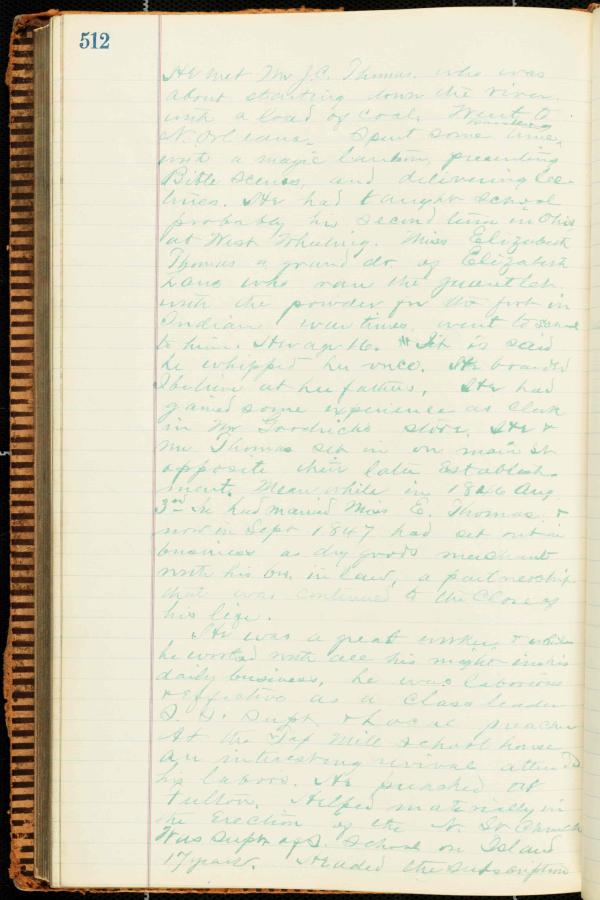 512
He met Mr J.C. Thomas who was
about starting down the river
with a load of coal. Went to
N. Orleans. Spent some time,
with a magic lantern, presenting
Bible scenes, and delivering lec-
tures. He had taught school
probably his second term in Ohio
at West Wheeling. Miss Elizabeth
Thomas a grand dr. of Elizabeth
Zane who ran the guantlet
with the powder for the fort in
Indian war times. went to school
to him. Her age 16. It is said
he whipped her once. He boarded
I believe at her fathers. He had
gained some experience as clerk
in Mr Goodrichs store. He &
Mr Thomas set in on main st
opposite their later establish-
ment. Mean while in 1846 Aug
3rd he had married Miss E. Thomas. &
now in Sept 1847 had set out in
business as dry goods merchant
with his bro. in law, a partnership
that was continued to the close of
his life.
He was a great worker & while
he worked with all his might in his
daily business, he was laborious
& effective as a class leader
S. S. Supt & Local preacher
At the Mill school house
an interesting revival attended
his labors. He preached at
Fulton. Helped materially in
the erection of the N. St Church
Was Supt of S. School on Island
17 years. Headed the subscription